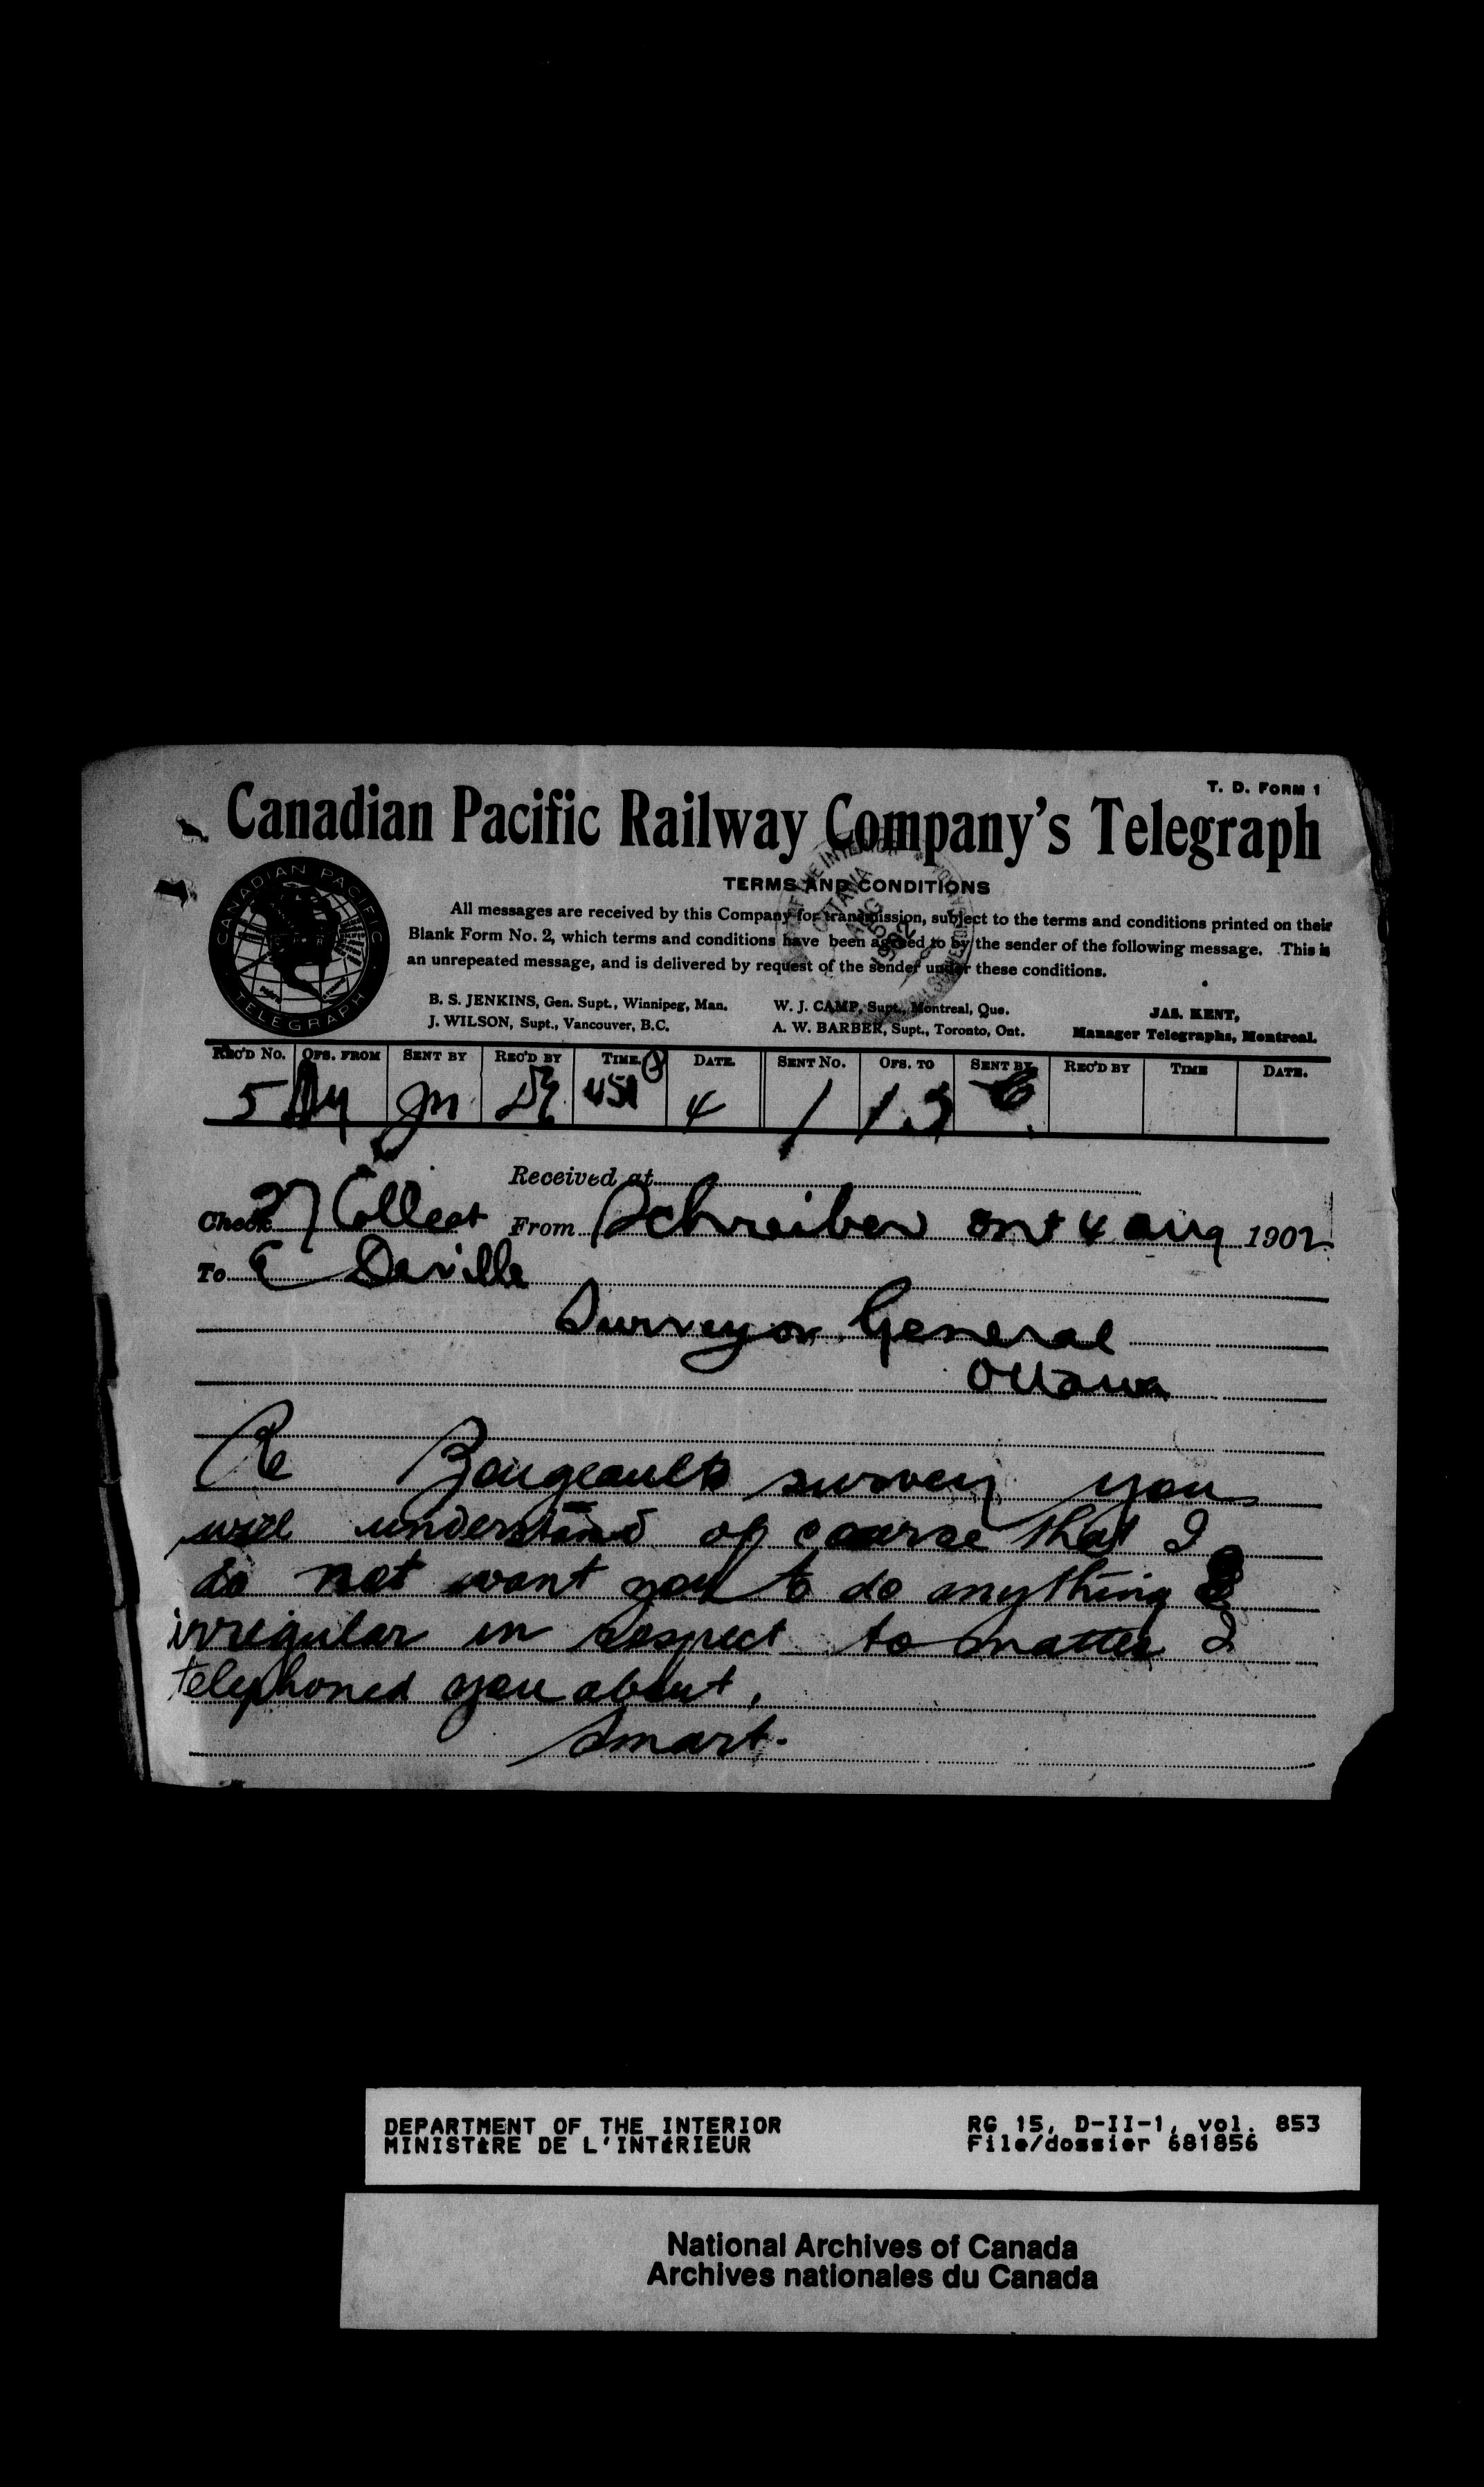 T. D. FORM 1
Canadian Pacific Railway Company's Telegraph
CANADIAN PACIFIC
TELEGRAPH
TERMS AND CONDITIONS
All messages are received by this Company for transmission, subject to the terms and conditions printed on their
Blank Form No. 2, which terms and conditions have been agreed to by the sender of the following message. This is
an unrepeated message, and is delivered by request of the sender under these conditions.
B. S. JENKINS, Gen. Supt., Winnipeg, Man.
J. WILSON, Supt., Vancouver, B.C.
W. J. CAMP, Supt., Montreal, Que.
A. W. BARBER, Supt., Toronto, Ont.
JAS. KENT,
Manager Telegraphs, Montreal.
OTTAWA
AUG 5
1902
REC'D NO. OFS. FROM SENT BY REC'D BY TIME. DATE. SENT NO. OFS. TO SENT BY REC'D BY TIME DATE.
5 4 1
Received at
Check 27 Collect From Schreiber Ont 4 Aug 1902
To E Deville
Surveyor General
Ottawa
Re Bourgeaults survey you
will understand of course that I
do not want you to do anything
irregular in respect to matter I
telephoned you about,
Smart.
DEPARTMENT OF THE INTERIOR
MINISTÈRE DE L'INTÉRIEUR
RG 15, D-II-1, vol. 853
File/dossier 681856
National Archives of Canada
Archives nationales du Canada